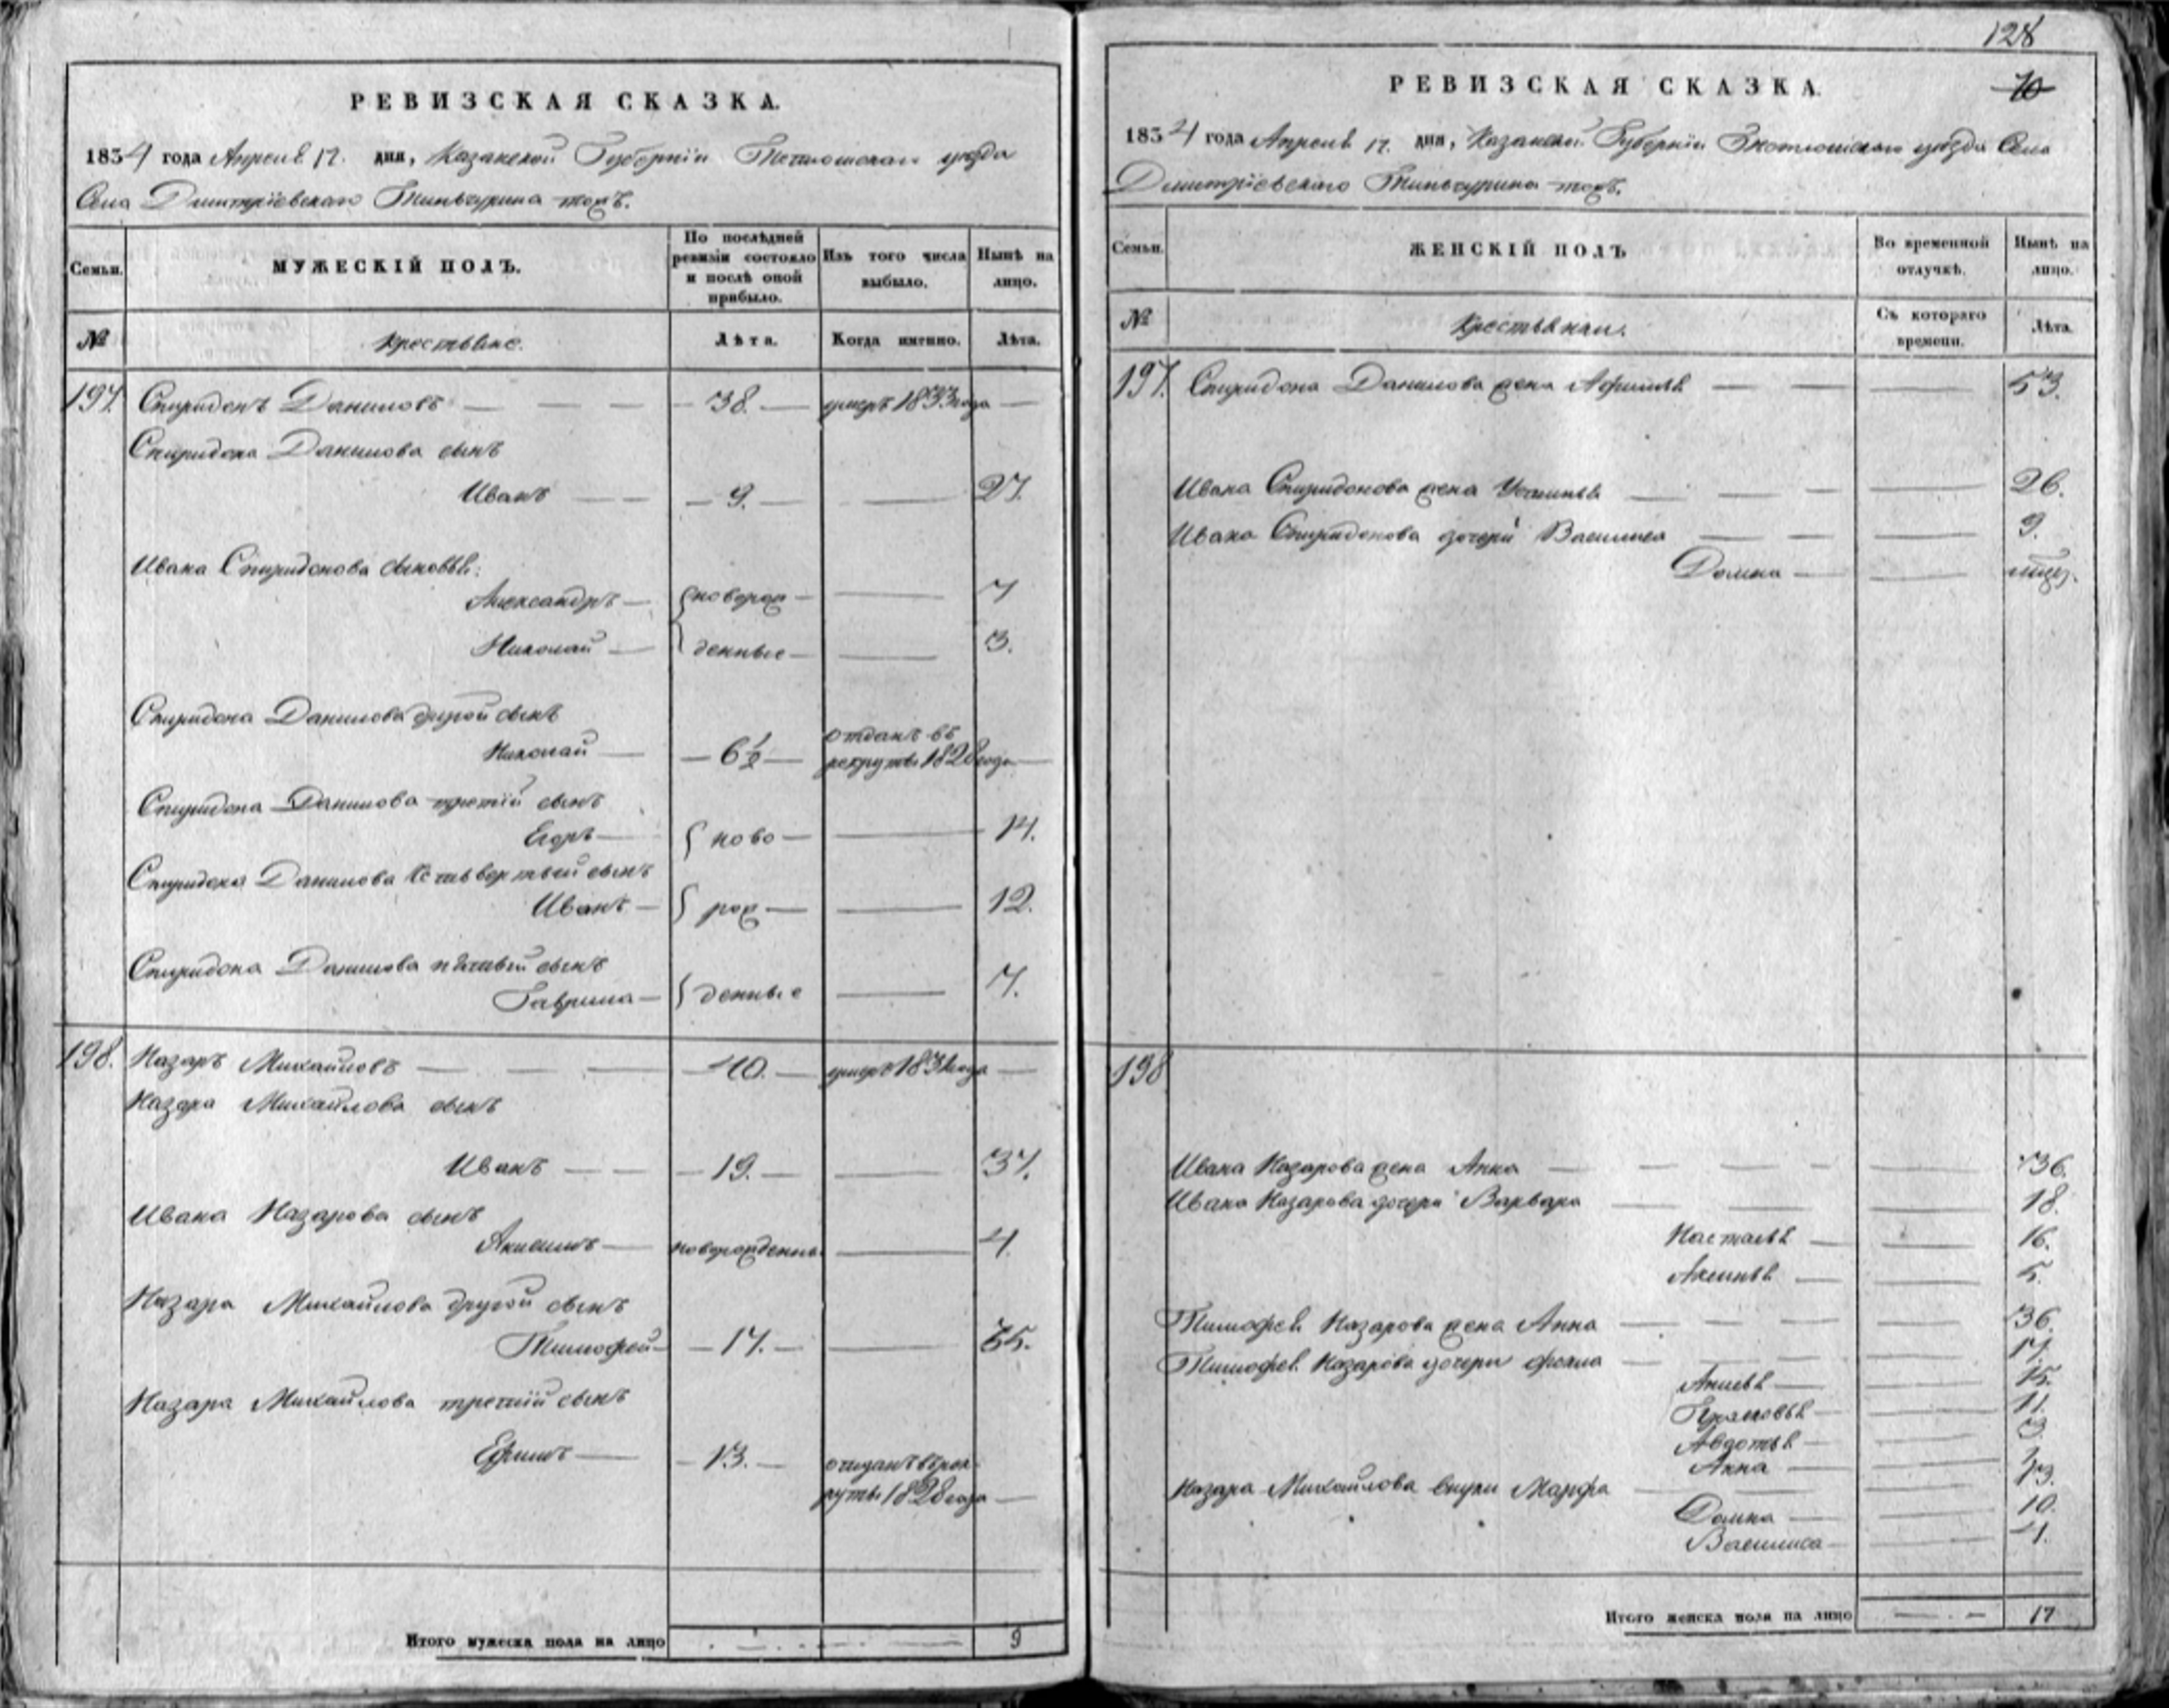 РЕВИЗСКАЯ СКАЗКА.
1834 года Апреля 17. дня, Казанской Губернiи уезда
Села Дмитрiевскаго Тинчурина тожъ.
Семьи. МУЖЕСКIЙ ПОЛЪ. По послѣдней ревизiи состояло и послѣ оной прибыло. Изъ того числа выбыло. Нынѣ на лицо.
№ Крестьяне. Лѣта. Когда именно. Лѣта.
197. Спиридонъ Даниловъ — 38. — умеръ 1833 года —
Спиридона Данилова сынъ
Иванъ — 9. — 27.
Ивана Спиридонова сыновья:
Александръ — новорож — 7
Николай — денные — 3.
Спиридона Данилова другой сынъ
Николай — 6½ — отданъ въ рекруты 1828 года —
Спиридона Данилова третiй сынъ
Егоръ — ново — 14.
Спиридона Данилова четвертый сынъ
Иванъ — рож — 12.
Спиридона Данилова пятый сынъ
Гаврила — денные — 7.
198. Назаръ Михайловъ — 40. — умеръ года —
Назара Михайлова сынъ
Иванъ — 19. — 37.
Ивана Назарова сынъ
новорожденны — 4.
Назара Михайлова другой сынъ
Тимофей — 17. — 35.
Назара Михайлова третiй сынъ
Ефимъ — 13. — отданъ въ рек-
руты 1828 года —
Итого мужеска пола на лицо 9
128
70
РЕВИЗСКАЯ СКАЗКА.
1834 года Апреля 17. дня, Казанской Губернiи уезда Села
Дмитрiевскаго Тинчурина тожъ.
Семьи. ЖЕНСКIЙ ПОЛЪ Во временной отлучкѣ. Нынѣ на лицо.
№ Крестьянки. Съ котораго времени. Лѣта.
197. Спиридона Данилова жена Афимья — 53.
Ивана Спиридонова жена Устинья — 26.
Ивана Спиридонова дочери Василиса — 9.
Домна —
198
Ивана Назарова жена Анна — 36.
Ивана Назарова дочери Варвара — 18.
Настасья — 16.
Аксинья — 5.
Тимофея Назарова жена Анна — 36.
Тимофея Назарова дочери Фекла — 17.
15.
Прасковья — 11.
Авдотья — 3.
Анна —
Назара Михайлова внуки Марфа — 13.
Домна — 10.
Василиса — 4.
Итого женска пола на лицо — 17